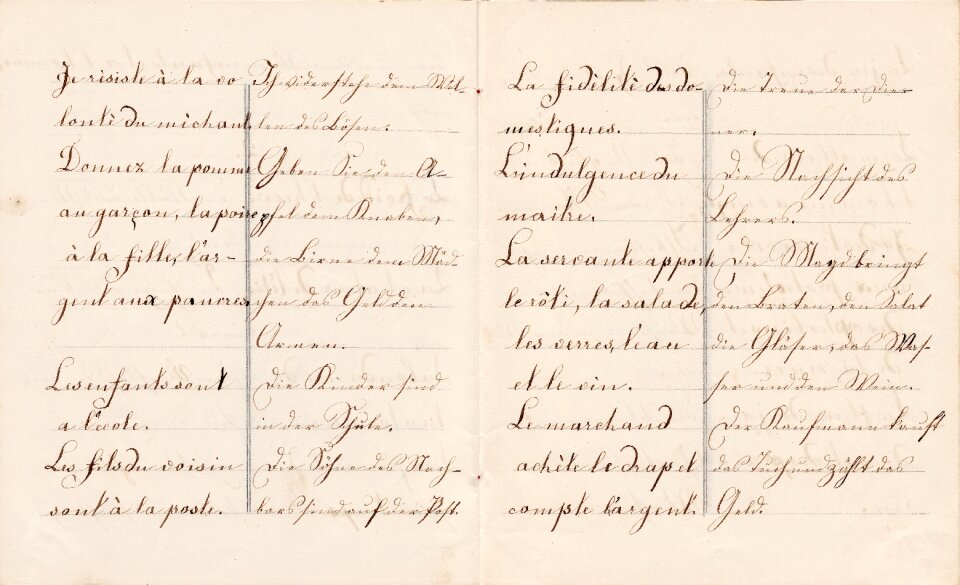 Je résiste à la vo
lonté du méchant.
Donnez la pomme
au garçon, la poire
à la fille, l'ar-
gent aux pauvres.
Les enfants sont
a l'école.
Les fils du voisin
sont à la poste.
Ich widerstehe dem Wil-
len des Bösen.
Geben Sie den A-
pfel dem Knaben,
die Birne dem Mäd
chen das Geld den
Armen.
Die Kinder sind
in der Schule.
Die Söhne des Nach-
bars sind auf der Post.
La fidélité des do-
mestiques.
L'indulgence du
maître.
La servante apporte
le rôti, la salade,
les verres, l'eau
et le vin.
Le marchand
achète le drap et
compte l'argent.
Die Treue der Die-
ner.
Die Nachsicht des
Lehrers.
Die Magd bringt
den Braten, den Salat
die Gläser, das Was-
ser und den Wein.
Der Kaufmann kauft
das Tuch und zählt das
Geld.